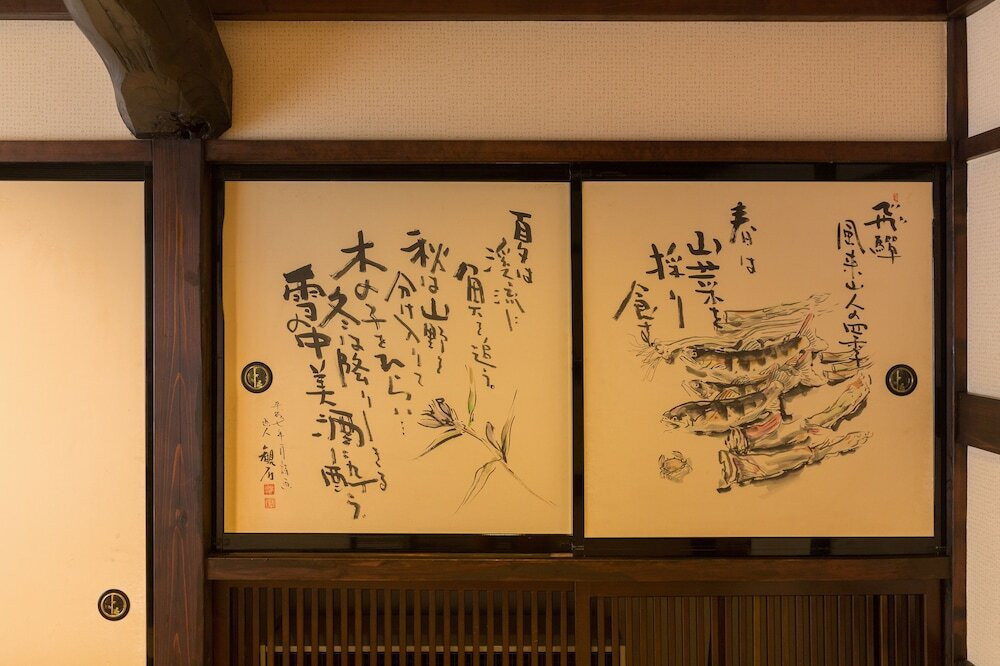 飛騨
風来山人の四季
春は
山菜を
採り
食す
夏は
渓流に
魚を追う。
秋は山野を
分け入りて
木の子をひらい…
冬は降りしきる
雪の中美酒に酔う。